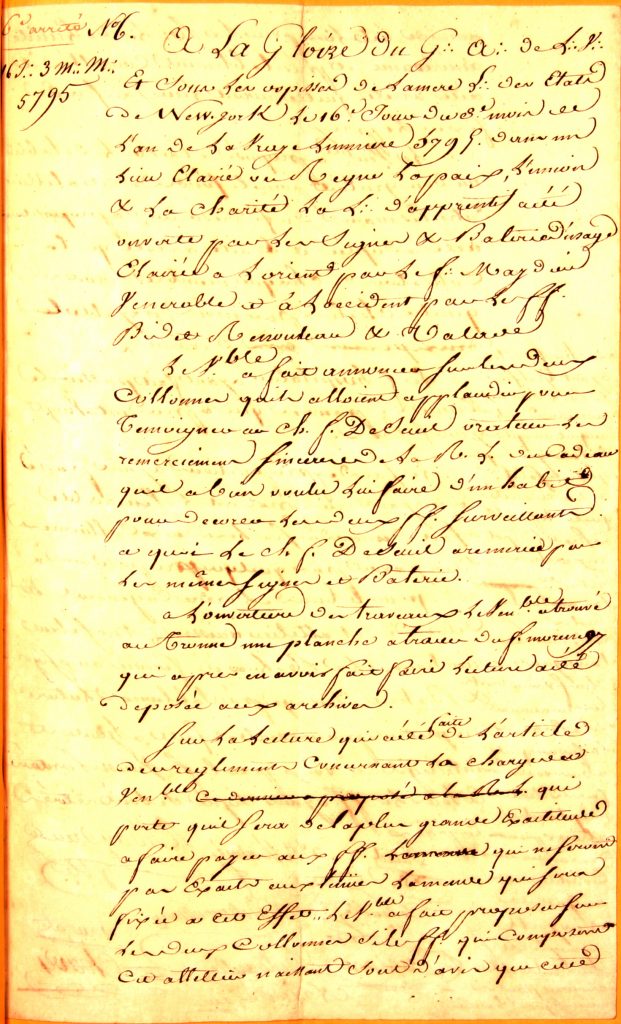 6e arrêté
No 6.
16 J∴ 3 M∴ M∴
5795
A La Gloire du G∴ A∴ de L∴ V∴
Et Sous Les ospisses de Lamere L∴ des Etats
de New york Le 16e Jour du 3e mois de
L'an de La Vraye Lumiere 5795. dans un
Lieu Eclairé ou Regne La paix L'union
& La Charité La L∴ d'apprentif a été
ouverte par Les Signes & Baterie d'usage
Eclairée a L'orient par Le f∴ Magdieu
Venerable et à L'occident par Les ff.
Bidet Renouleau & Valarde
Le V.ble a fait annoncer sur les deux
Collonnes qu'ils alloient applaudir pour
Temoigner au Ch. f. DeSeul orateur Les
remerciement sinceres de La R. L. du Cadeau
qu'il a bien voulu Lui faire d'un habit
pour decorer Les deux ff. surveillants
a quoi Le Ch f. DeSeuil a remercié par
Les même Signes et Baterie.
a L'ouverture des travaux Le Ven.ble a trouvé
au Tronne une planche a tracer du f. moreng
qui apres en avoir fait faire Lecture a été
deposée aux archives.
Sur La Lecture qui a été faite de L'article
des reglements Concernant La Charge du
Ven.ble Ce dernier a proposé a la R. L. qui
porte qu'il sera de la plus grande Exactitude
a faire payer aux ff. qui ne seront
par Exacts aux Lamande qui sera
fixée a cet Effet.. Le V.ble a fait proposer sur
Les deux Collonnes si les ff. qui Composent
Cet attellier naissant sont d'avis que cette